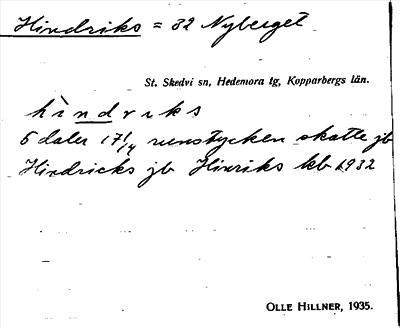 Hindriks = 32 Nyberget
St. Skedvi sn, Hedemora tg, Kopparbergs län.
hìndriks
5 daler 17 1/4 runstycken skatte jb
Hindricks jb Hinriks kb 1932
OLLE HILLNER, 1935.